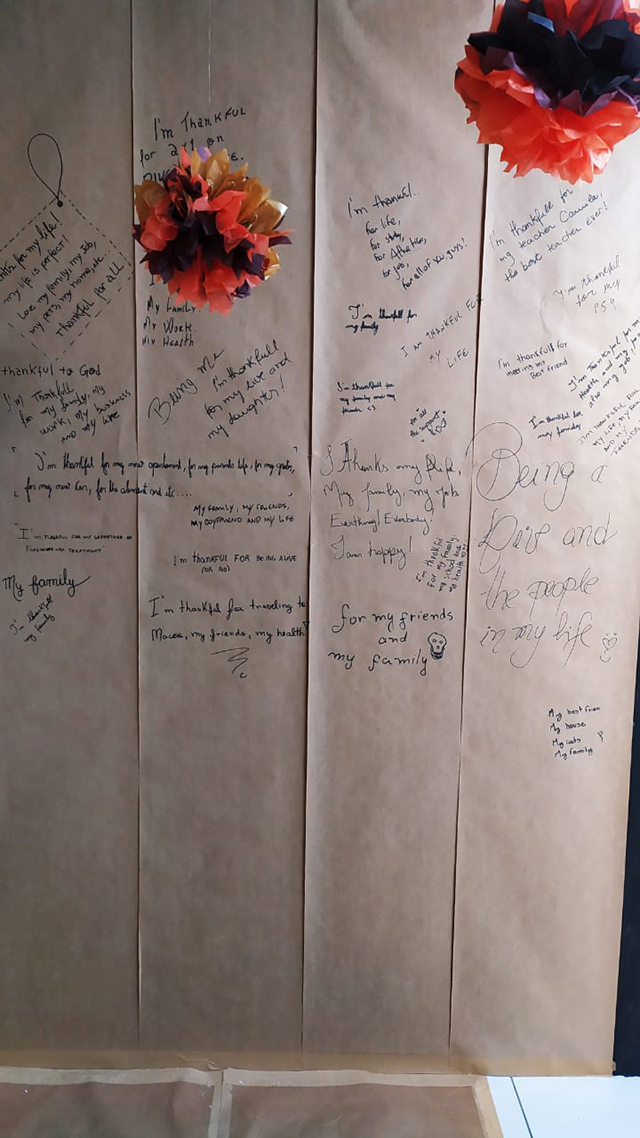 I'm Thankful
for all on
my life!
my life is perfect!
I love my family, my job,
my cats, my home, etc.
Thankful for all
My Family
My Work
My Health
thankful to God
I'm Thankfull
for my family, my
work, my business
and my life
Being me
I'm thankfull
for my live and
my daughter!
I'm thankful for my most apartment, for my parents life, for my cats,
for my most car, for the and etc....
MY FAMILY, MY FRIENDS,
MY BOYFRIEND AND MY LIFE
TREATMENT"
I'm thankful FOR BEING ALIVE
My family
I'm thankful
my family
I'm thankful for traveling to
Macea, my friends, my health
I'm thankful..
for life,
for study,
for Athetics,
for job,
for all of you guys!
I'm thankfull for
my family
I AM THANKFUL FOR
MY LIFE
I'm thankfull for
my family and my
friends
to all
the support
I Thanks my life,
My family, my job
Everthing! Everybody.
I am happy!
I'm thankful
For my family
my school and
my health
for my friends
and
my family
I'm thankfull for
my teacher Camila,
the best teacher ever!
I'm thankful
for my
I'm thankfull for
meeting my
best friend
I'm thankful for
my family
Being a
and
the people
in my life
My best frien
My house
My cats
My family